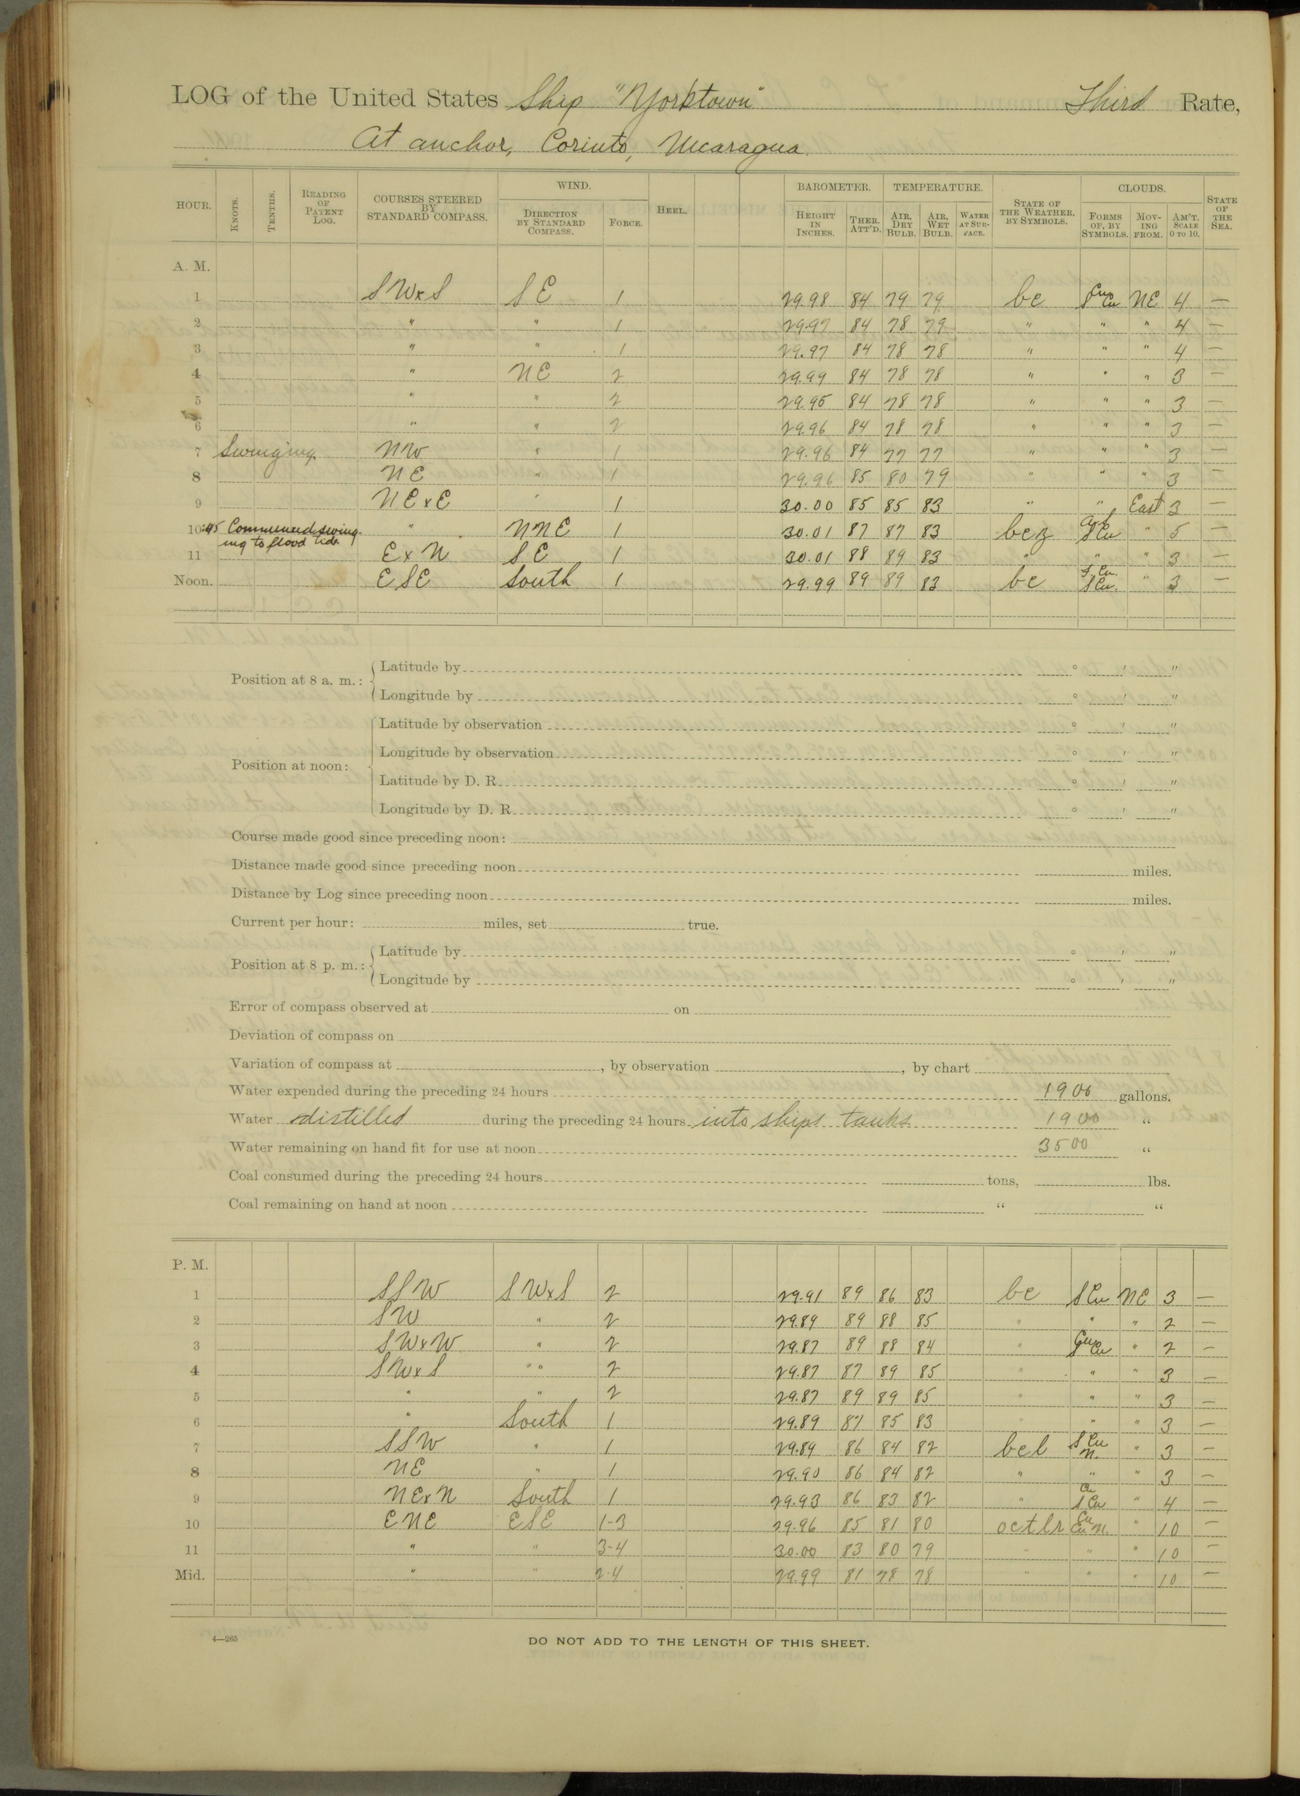 LOG of the United States Ship "Yorktown" Third Rate,
At anchor, Corinto, Nicaragua
HOUR. KNOTS. TENTHS. READING OF PATENT LOG. COURSES STEERED BY STANDARD COMPASS. WIND. DIRECTION BY STANDARD COMPASS. FORCE. HEEL. BAROMETER. HEIGHT IN INCHES. THER. ATT'D. TEMPERATURE. AIR, DRY BULB. AIR, WET BULB. WATER AT SURFACE. STATE OF THE WEATHER, BY SYMBOLS. CLOUDS. FORMS OF, BY SYMBOLS. MOVING FROM. AM'T. SCALE 0 TO 10. STATE OF THE SEA.
A. M.
1 SWxS SE 1 29.98 84 79 79 bc Cu SCu NE 4 —
2 " " 1 29.97 84 78 79 " " " 4 —
3 " " 1 29.97 84 78 78 " " " 4 —
4 " NE 2 29.94 84 78 78 " " " 3 —
5 " " 2 29.95 84 78 78 " " " 3 —
6 " " 2 29.96 84 78 78 " " " 3 —
7 Swinging. NW " 1 29.96 84 77 77 " " " 3 —
8 NE " 1 29.96 85 80 79 " " " 3 —
9 NExE " 1 30.00 85 85 83 " " East 3 —
10 :45 Commenced swinging to flood tide " NNE 1 30.01 87 87 83 bcz SCu " 5 —
11 ExN SE 1 30.01 88 89 83 " " " 3 —
Noon. ESE South 1 29.99 89 89 83 bc SCu. " 3 —
Position at 8 a. m.: Latitude by ° ′ ″
Longitude by ° ′ ″
Position at noon: Latitude by observation ° ′ ″
Longitude by observation ° ′ ″
Latitude by D. R. ° ′ ″
Longitude by D. R. ° ′ ″
Course made good since preceding noon:
Distance made good since preceding noon miles.
Distance by Log since preceding noon miles.
Current per hour: miles, set true.
Position at 8 p. m.: Latitude by ° ′ ″
Longitude by ° ′ ″
Error of compass observed at on
Deviation of compass on
Variation of compass at , by observation , by chart
Water expended during the preceding 24 hours 1900 gallons.
Water distilled during the preceding 24 hours into ships tanks 1900 "
Water remaining on hand fit for use at noon 3500 "
Coal consumed during the preceding 24 hours tons, lbs.
Coal remaining on hand at noon " "
P. M.
1 SSW SWxS 2 29.91 89 86 83 bc SCu NE 3 —
2 SW " 2 29.89 89 88 85 " " " 2 —
3 SWxW " 2 29.87 89 88 84 " Cu SCu " 2 —
4 SWxS " 2 29.87 87 89 85 " " " 3 —
5 " " 2 29.87 89 89 85 " " " 3 —
6 " South 1 29.89 87 85 83 " " " 3 —
7 SSW " 1 29.89 86 84 82 bcl SCu N. " 3 —
8 NE " 1 29.90 86 84 82 " " " 3 —
9 NExN South 1 29.93 86 83 82 " Cu SCu " 4 —
10 ENE ESE 1-3 29.96 85 81 80 octlr Cu N. " 10 —
11 " " 3-4 30.00 83 80 79 " " " 10 —
Mid. " " 2-4 29.99 81 78 78 " " " 10 —
4—265
DO NOT ADD TO THE LENGTH OF THIS SHEET.